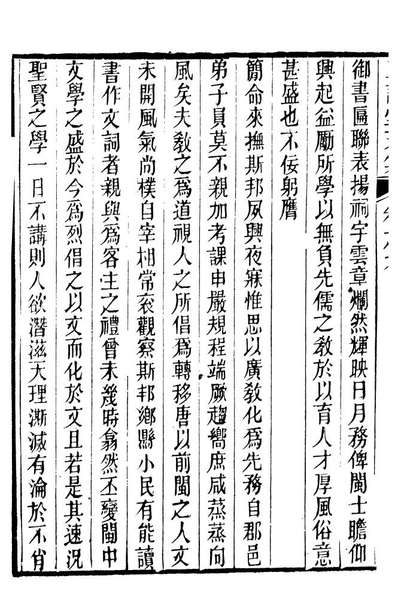 御書匾聯表揚祠宇雲章爛然輝映日月務俾閩士瞻仰
興起益勵所學以無負先儒之敎於以育人才厚風俗意
甚盛也不佞躬膺
簡命來撫斯邦夙興夜寐惟思以廣敎化爲先務自郡邑
弟子員莫不親加考課申嚴規程端厥趨嚮庶咸蒸蒸向
風矣夫敎之爲道視人之所倡爲轉移唐以前閩之人文
未開風氣尚樸自宰相常衮觀察斯邦鄉縣小民有能讀
書作文詞者親與爲客主之禮曾未幾時翕然丕變閩中
文學之盛於今爲烈倡之以文而化於文且若是其速況
聖賢之學一日不講則人欲潛滋天理漸滅有淪於不肖